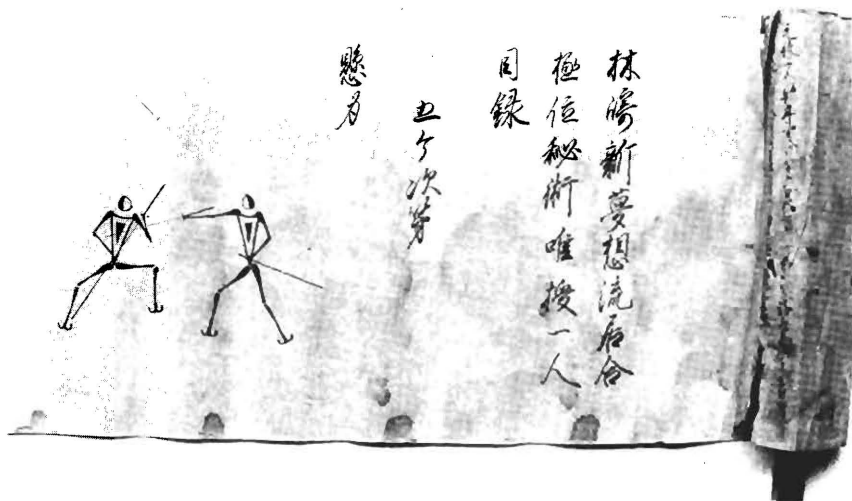 林崎新夢想流居合
極位秘術唯授一人
目録
五ケ次第
懸刀